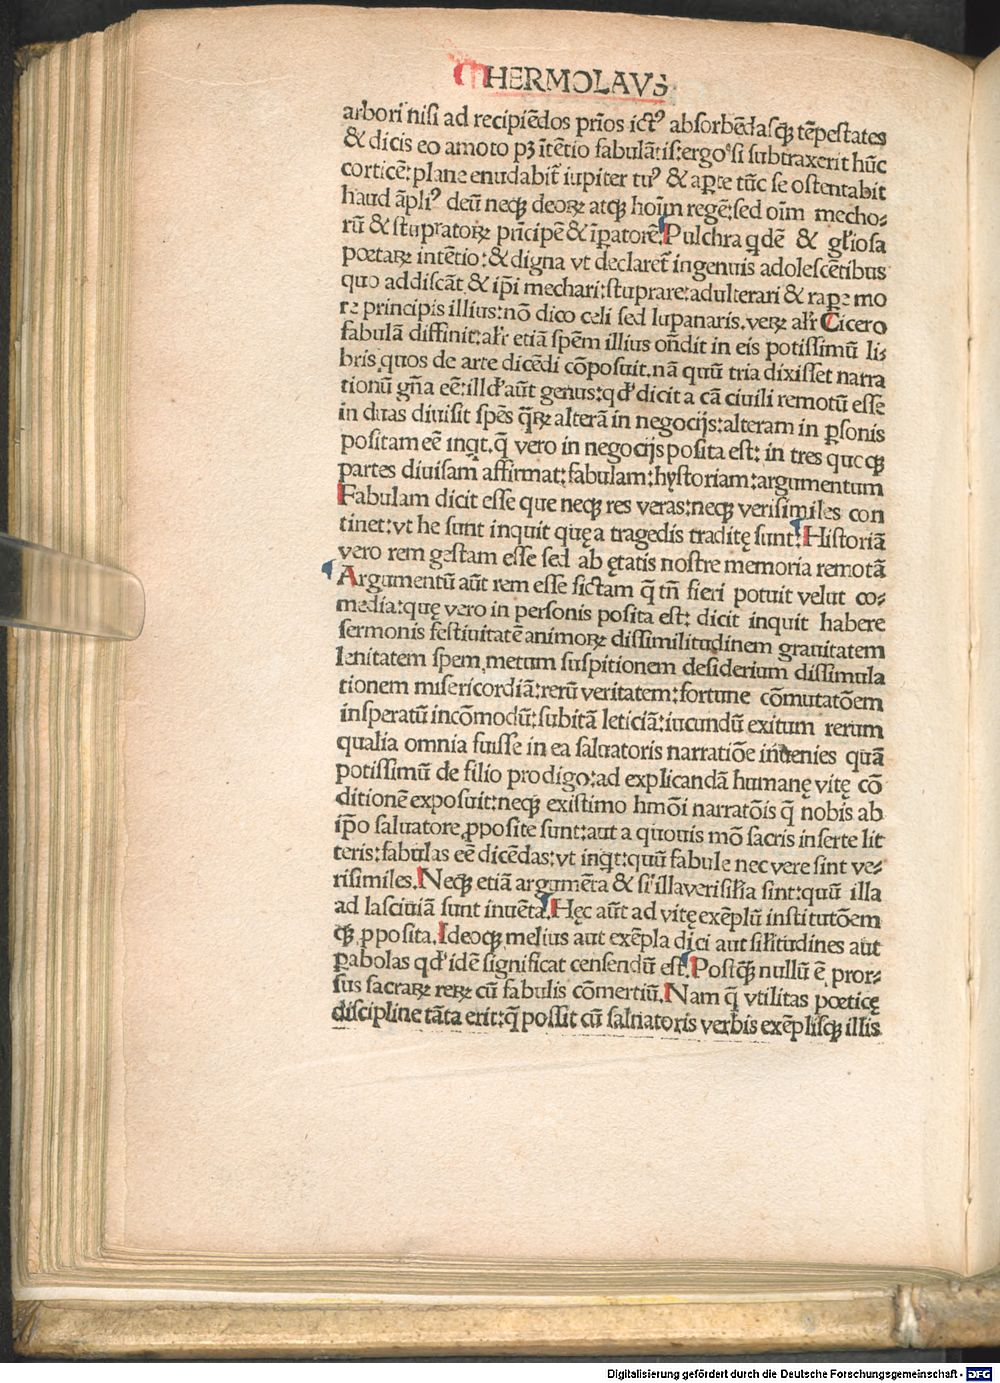 HERMOLAVS
arbori nisi ad recipiēdos prīos ictꝰ absorbēdasqꝫ tēpestates
& dicis eo amoto pꝫ ītētio fabulātis:ergo si subtraxerit hūc
corticē:plane enudabit̄ iupiter tuꝰ & aꝑte tūc se ostentabit
haud āpliꝰ deū neqꝫ deoꝝ atqꝫ hoīm regē:sed oīm mecho⸗
rū & stupratoꝝ prīcipē & īꝑatorē.Pulchra qdē & gl̄iosa
poetaꝝ intētio:& digna vt declaret̄ ingenuis adolescētibus
quo addiscāt & ip̄i mechari:stuprare:adulterari & raꝑe mo
re principis illius:nō dico celi sed lupanaris.veꝝ al̄r Cicero
fabulā diffinit:al̄r etiā spēm illius on̄dit in eis potissimū li⸗
bris,quos de arte dicēdi cōposuit.nā quū tria dixisset narra
tionū gn̄a eē:illd' aūt genus:qd' dicit a cā ciuili remotū esse
in duas diuisit spēs q̄ꝝ alterā in negocijs:alteram in ꝑsonis
positam eē inqt.q̄ vero in negocijs posita est: in tres quoqꝫ
partes diuisam affirmat:fabulam:hystoriam:argumentum
Fabulam dicit esse que neqꝫ res veras:neqꝫ verisimiles con
tinet:vt he sunt inquit quę a tragedis traditę sunt.Historiā
vero rem gestam esse sed ab ętatis nostre memoria remotā
Argumentū aūt rem esse fictam q̄ tn̄ fieri potuit velut co⸗
media:quę vero in personis posita est: dicit inquit habere
sermonis festiuitatē animoꝝ dissimilitudinem grauitatem
lenitatem spem,metum suspitionem desiderium dissimula
tionem misericordiā:rerū veritatem:fortune cōmutatōem
insperatū incōmodū:subitā leticiā:iucundū exitum rerum
qualia omnia fuisse in ea saluatoris narratiōe inuenies quā
potissimū de filio prodigo:ad explicandā humanę vitę cō
ditionē exposuit:neqꝫ existimo hmōi narratōis q̄ nobis ab
ip̄o saluatore ꝓposite sunt:aut a quouis mō sacris inserte lit
teris:fabulas eē dicēdas:vt inqt:quū fabule nec vere sint ve⸗
risimiles.Neqꝫ etiā argumēta & si illa verisil̄ia sint:quū illa
ad lasciuiā sunt inuēta.Hęc aūt ad vitę exēplū institutōem
qꝫ ꝓposita.Ideoqꝫ melius aut exēpla dici aut sil̄itudines aut
ꝑabolas qd' idē significat censendū est.Postqꝫ nullū ē pror⸗
sus sacraꝝ reꝝ cū fabulis cōmertiū.Nam q̄ vtilitas poeticę
discipline tāta erit:q̄ possit cū saluatoris verbis exēplisqꝫ illis
Digitalisierung gefördert durch die Deutsche Forschungsgemeinschaft - DFG